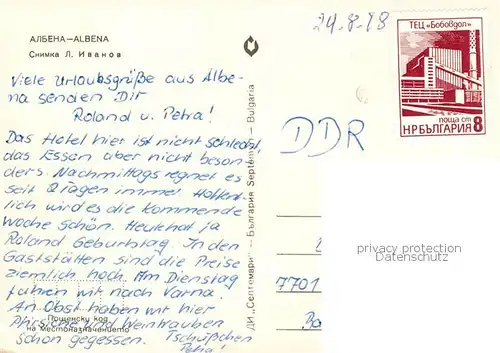 24.8.78
ТЕЦ „Бобовдол"
поща ст
НРБЪЛГАРИЯ 8
АЛБЕНА—ALBENA
Снимка Л. Иванов
Viele Urlaubsgrüße aus Albe-
na senden Dir
Roland u. Petra!
Das Hotel hier ist nicht schlecht,
das Essen aber nicht beson-
ders. Nachmittags regnet es
seit 2 Tagen immer. Hoffent-
lich wird es die kommende
Woche schön. Heute hat ja
Roland Geburtstag. In den
Gaststätten sind die Preise
ziemlich hoch. Am Dienstag
fahren wir nach Varna.
An Obst haben wir hier
Pfirsiche und Weintrauben
schon gegessen. Tschüßchen
Petra!
Пощенски код
на местоназначението
ДИ „Септември" — България Septemvri — Bulgaria
DDR
privacy protection
Datenschutz
7701